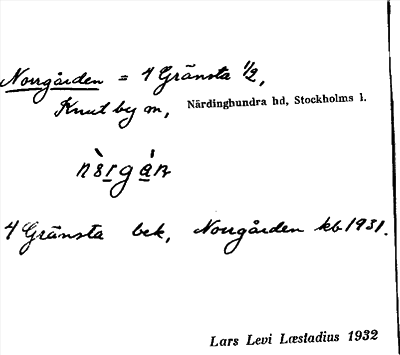 Norrgården = 4 Gränsta 1/2,
Knutby sn, Närdinghundra hd, Stockholms l.
4 Gränsta bek, Norrgården kb 1931.
Lars Levi Læstadius 1932